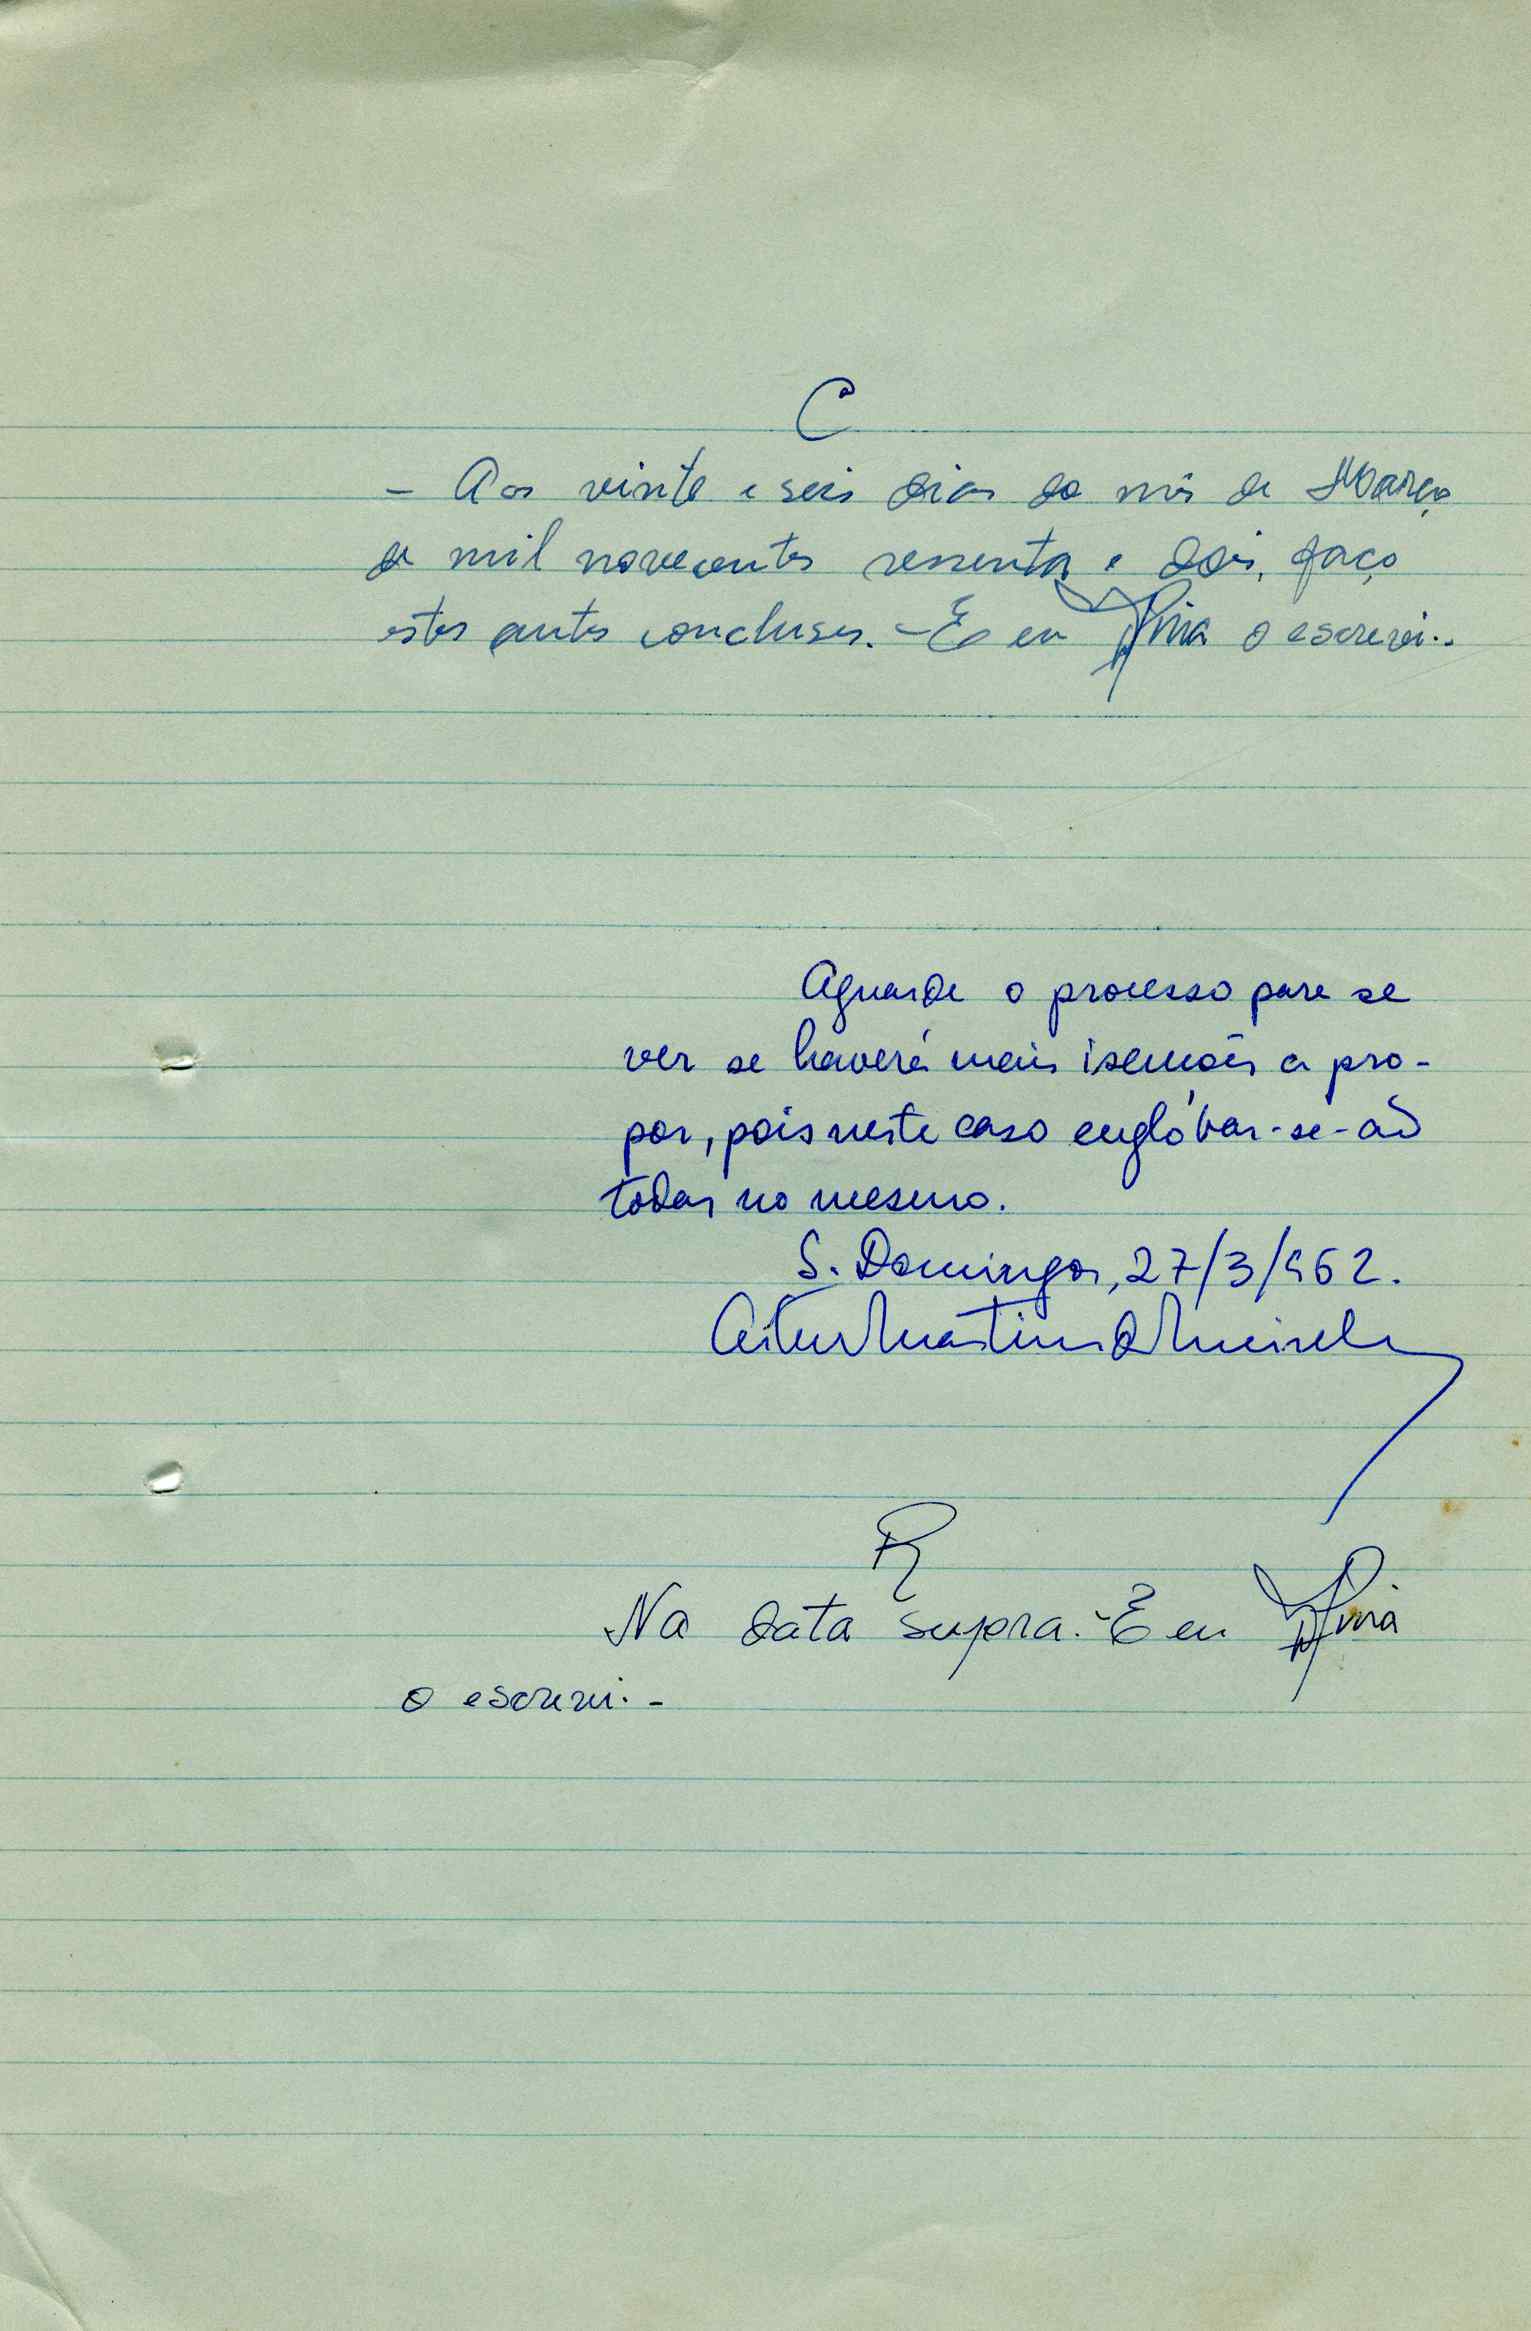 C
- Aos vinte e seis dias do mês de Março
de mil novecentos sessenta e dois, faço
estes autos conclusos. - E eu Pina o escrevi. -
Aguarde o processo para se
ver se haverá mais isenções a pro-
por, pois neste caso englóbar-se-ão
todas no mesmo.
S. Domingos, 27/3/962.
Martins de Meireles
R
Na data supra. - E eu Pina
o escrevi. -